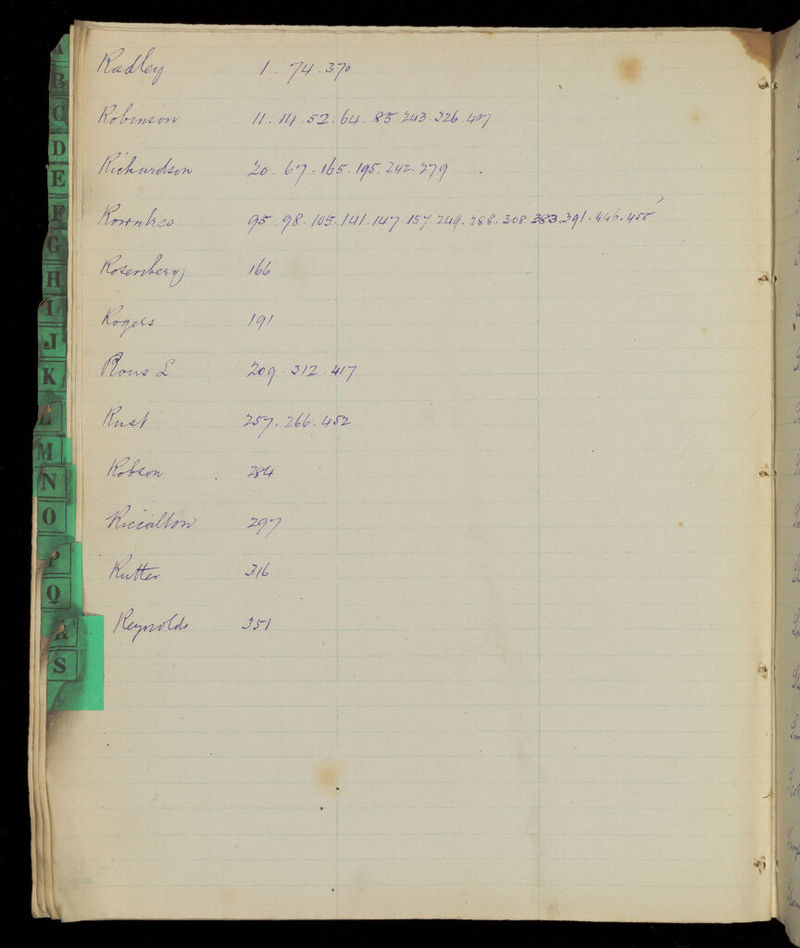 Radley 1. 74. 370
Robinson 11. 14. 52. 64. 85. 243. 326. 407
Richardson 20. 67. 165. 195. 242. 279
Rowntree 95. 98. 105. 141. 147. 157. 249. 288. 308. 383. 391. 446. 455
Rosenberg 166
Rogers 191
Rous L 209. 312. 417
Rust 257. 266. 452
Robson 284
Riccalton 297
Rutter 316
Reynolds 351
A
B
C
D
E
F
G
H
I
J
K
L
M
N
O
P
Q
R
S